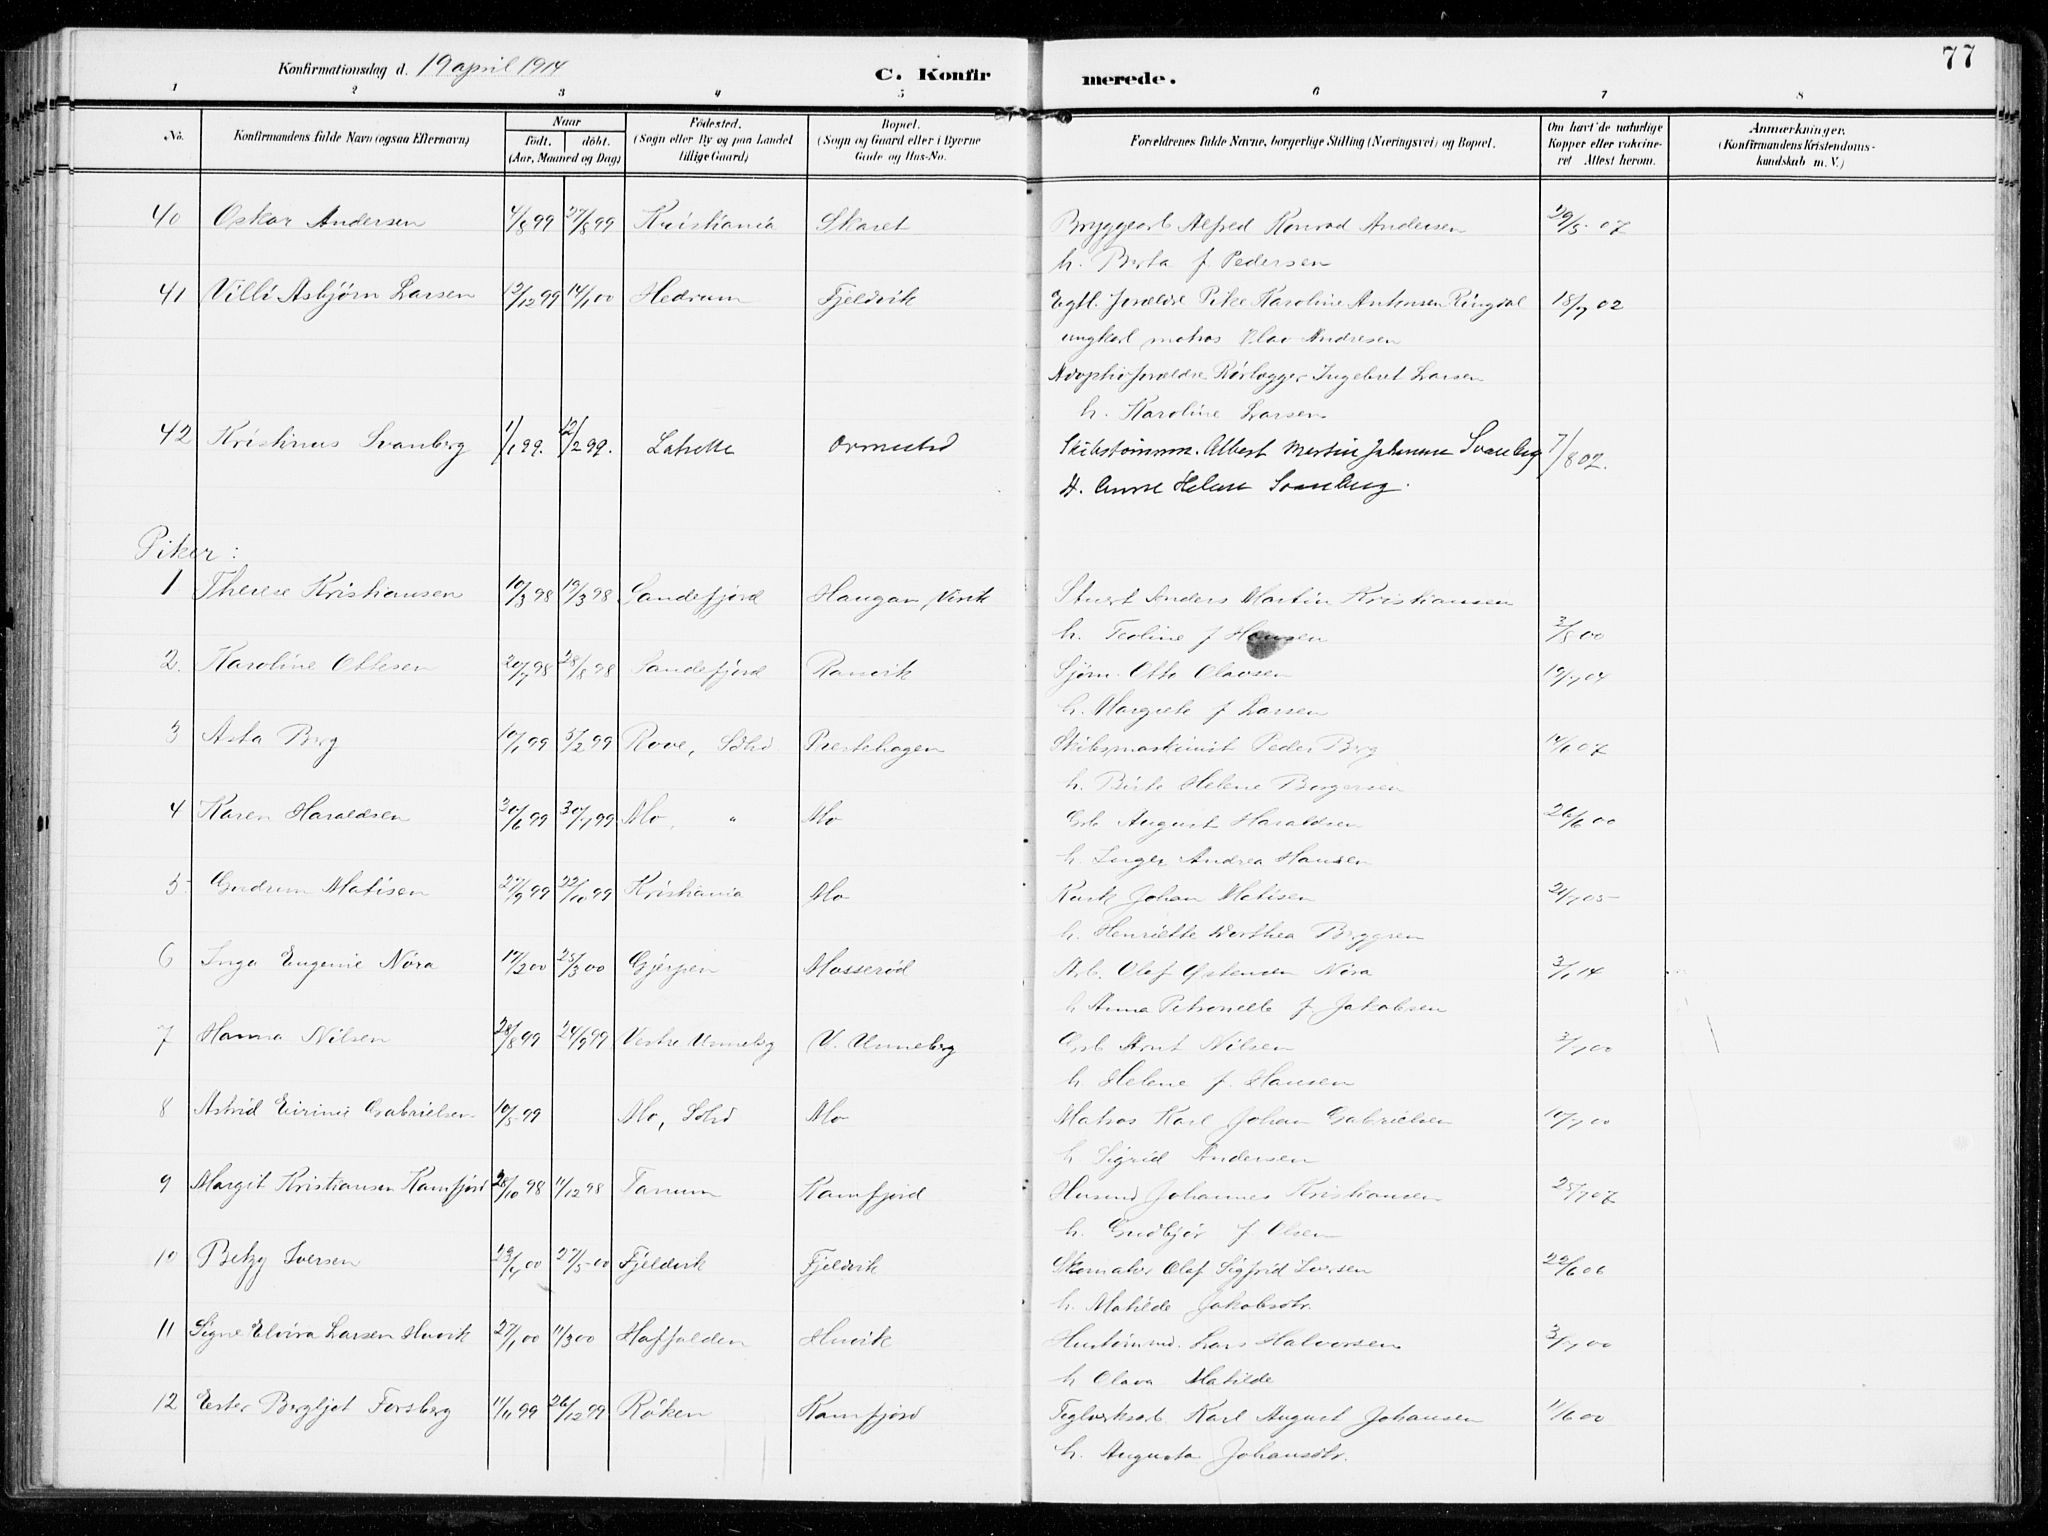 77
Konfirmationsdag d. 19 april 1914 C. Konfir merede.
1 2 3 4 5 6 7 8
No. Konfirmandens fulde Navn (ogsaa Efternavn) Naar født. døbt. (Aar, Maaned og Dag) Fødested. (Sogn eller By og paa Landet tillige Gaard) Bopæl. (Sogn og Gaard eller i Byerne Gade og Hus-No. Forældrenes fulde Navne, borgerlige Stilling (Næringsvei) og Bopæl. Om havt de naturlige Kopper eller vakcineret Attest herom. Anmærkninger. (Konfirmandens Kristendomskundskab m. V.)
40 Oskar Andersen 4/8 99 27/8 99 Kristiania Skaret Bryggearb Alfred Konrad Andersen 29/5 07
h. Berta f. Pedersen
41 Villi Asbjørn Larsen 12/12 99 14/1 00 Hedrum Fjeldvik Egtl. forældre Pike Karoline Antonsen Ringdal 18/7 02
ungkarl matros Olav Andresen
Adoptivforældre Rørlægger Ingebret Larsen
h. Karoline Larsen
42 Kristinus Svanberg 1/1 99. 12/2 99. Ormestad Skibstømm. Albert Martin Johannes Svanberg 7/8 02.
H. Anne Helene Svanberg.
Piker:
1 Therese Kristiansen 10/3 98 19/3 98 Sandefjord Haugan, Virik Stuert Anders Martin Kristiansen
h. Teoline f Hansen 3/8 00
2. Karoline Ottesen 20/7 98 28/8 98 Sandefjord Ranvik Sjøm. Otto Olavsen 19/7 04
h. Margrete f Larsen
3 Asta Berg 10/1 99 5/2 99 Rove, Sdhrd Prestehagen Skibsmaskinist Peder Berg 14/6 07
h. Birte Helene Borgersen
4 Karen Haraldsen 30/6 99 30/7 99 Mo, " Mo Arb August Haraldsen 26/6 00
h. Inger Andrea Hansen
5 Gudrun Matisen 27/9 99 22/10 99 Kristiania Mo Kusk Johan Matisen 21/7 05
h. Henriette Dorthea Berggren
6 Inga Eugenie Nøra 17/2 00 25/3 00 Gjerpen Mosserød Arb. Olaf Østensen Nøra 3/1 14
h Anna Petronelle f. Jakobsen
7 Hanna Nilsen 28/8 99 24/9 99 Vestre Unneberg V. Unneberg Arb Arnt Nilsen 3/7 00
h Helene f. Hansen
8 Astrid Eirinie Gabrielsen 10/5 99 Mo, Sdhrd Mo Matros Karl Johan Gabrielsen 10/7 00
h. Sigrid Andersen
9 Margit Kristiansen Kamfjord 28/10 98 11/12 98 Tanum Kamfjord Husmd Johannes Kristiansen 25/7 07
h. Gudbjør f. Olsen
10 Betzy Iversen 23/4 00 27/5 00 Fjeldvik Fjeldvik Skomaker Olaf Sigfrid Iversen 22/6 06
h. Matilde Jakobsdtr.
11 Signe Elvira Larsen Huvik 27/1 00 11/3 00 Haffalden Huvik Hustømmd. Lars Halvorsen 3/7 00
h Olava Matilde
12 Ester Bergljot Forsberg 11/11 99 26/12 99 Røken Kamfjord Teglverksarb Karl August Johansen 11/6 00
h. Augusta Johansdtr.